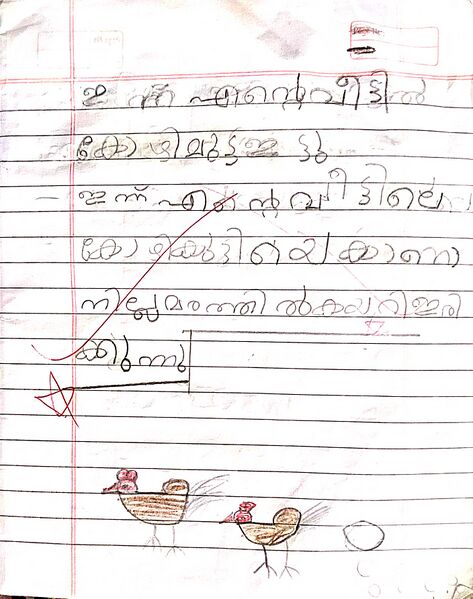 ഇന്ന് എന്റെ വീട്ടിൽ
കോഴി മുട്ട ഇട്ടു
ഇന്ന് എന്റെ വീട്ടിലെ
കോഴികുട്ടിയെ കാണാ
നില്ല മരത്തിൽ കയറി ഇരി
ക്കുന്നു